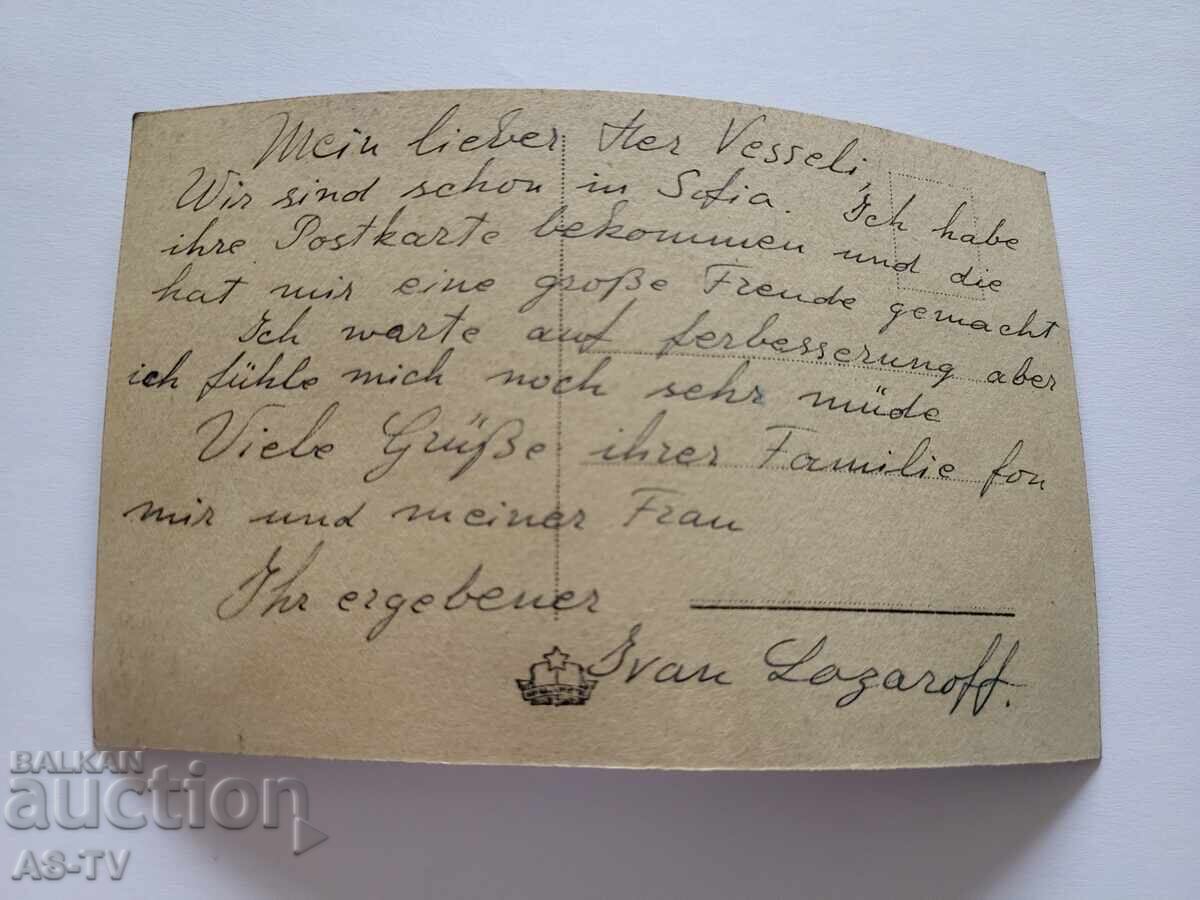 Mein lieber Her Vesseli,
Wir sind schon in Sofia. Ich habe
ihre Postkarte bekommen und die
hat mir eine große Freude gemacht
Ich warte auf ferbesserung aber
ich fühle mich noch sehr müde
Viele Grüße ihrer Familie fon
mir und meiner Frau
Ihr ergebener
Ivan Lazaroff.
BALKAN
auction
AS-TV